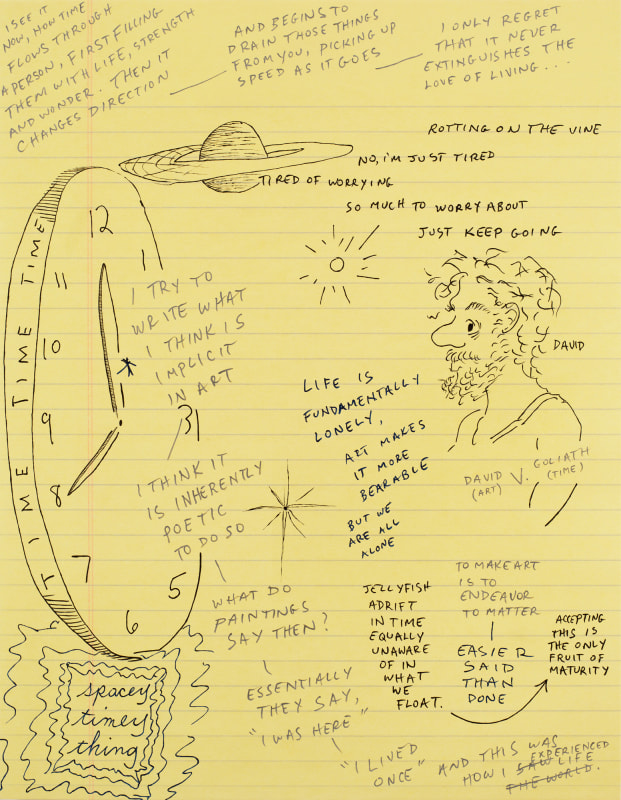 I SEE IT
NOW, HOW TIME
FLOWS THROUGH
A PERSON, FIRST FILLING
THEM WITH LIFE, STRENGTH
AND WONDER. THEN IT
CHANGES DIRECTION
AND BEGINS TO
DRAIN THOSE THINGS
FROM YOU, PICKING UP
SPEED AS IT GOES
I ONLY REGRET
THAT IT NEVER
EXTINGUISHES THE
LOVE OF LIVING...
ROTTING ON THE VINE
NO, I'M JUST TIRED
TIRED OF WORRYING
SO MUCH TO WORRY ABOUT
JUST KEEP GOING
TIME TIME TIME TIME
12
1
11
10
9
8
7
6
5
3
I TRY TO
WRITE WHAT
I THINK IS
IMPLICIT
IN ART
I THINK IT
IS INHERENTLY
POETIC
TO DO SO
WHAT DO
PAINTINGS
SAY THEN?
ESSENTIALLY
THEY SAY,
"I WAS HERE"
"I LIVED
ONCE"
AND THIS WAS
HOW I SAW LIFE
EXPERIENCED
THE WORLD.
LIFE IS
FUNDAMENTALLY
LONELY,
ART MAKES
IT MORE
BEARABLE
BUT WE
ARE ALL
ALONE
DAVID
DAVID
(ART)
V.
GOLIATH
(TIME)
JELLYFISH
ADRIFT
IN TIME
EQUALLY
UNAWARE
OF IN
WHAT
WE
FLOAT.
TO MAKE ART
IS TO
ENDEAVOR
TO MATTER
EASIER
SAID
THAN
DONE
ACCEPTING
THIS IS
THE ONLY
FRUIT OF
MATURITY
spacey
timey
thing